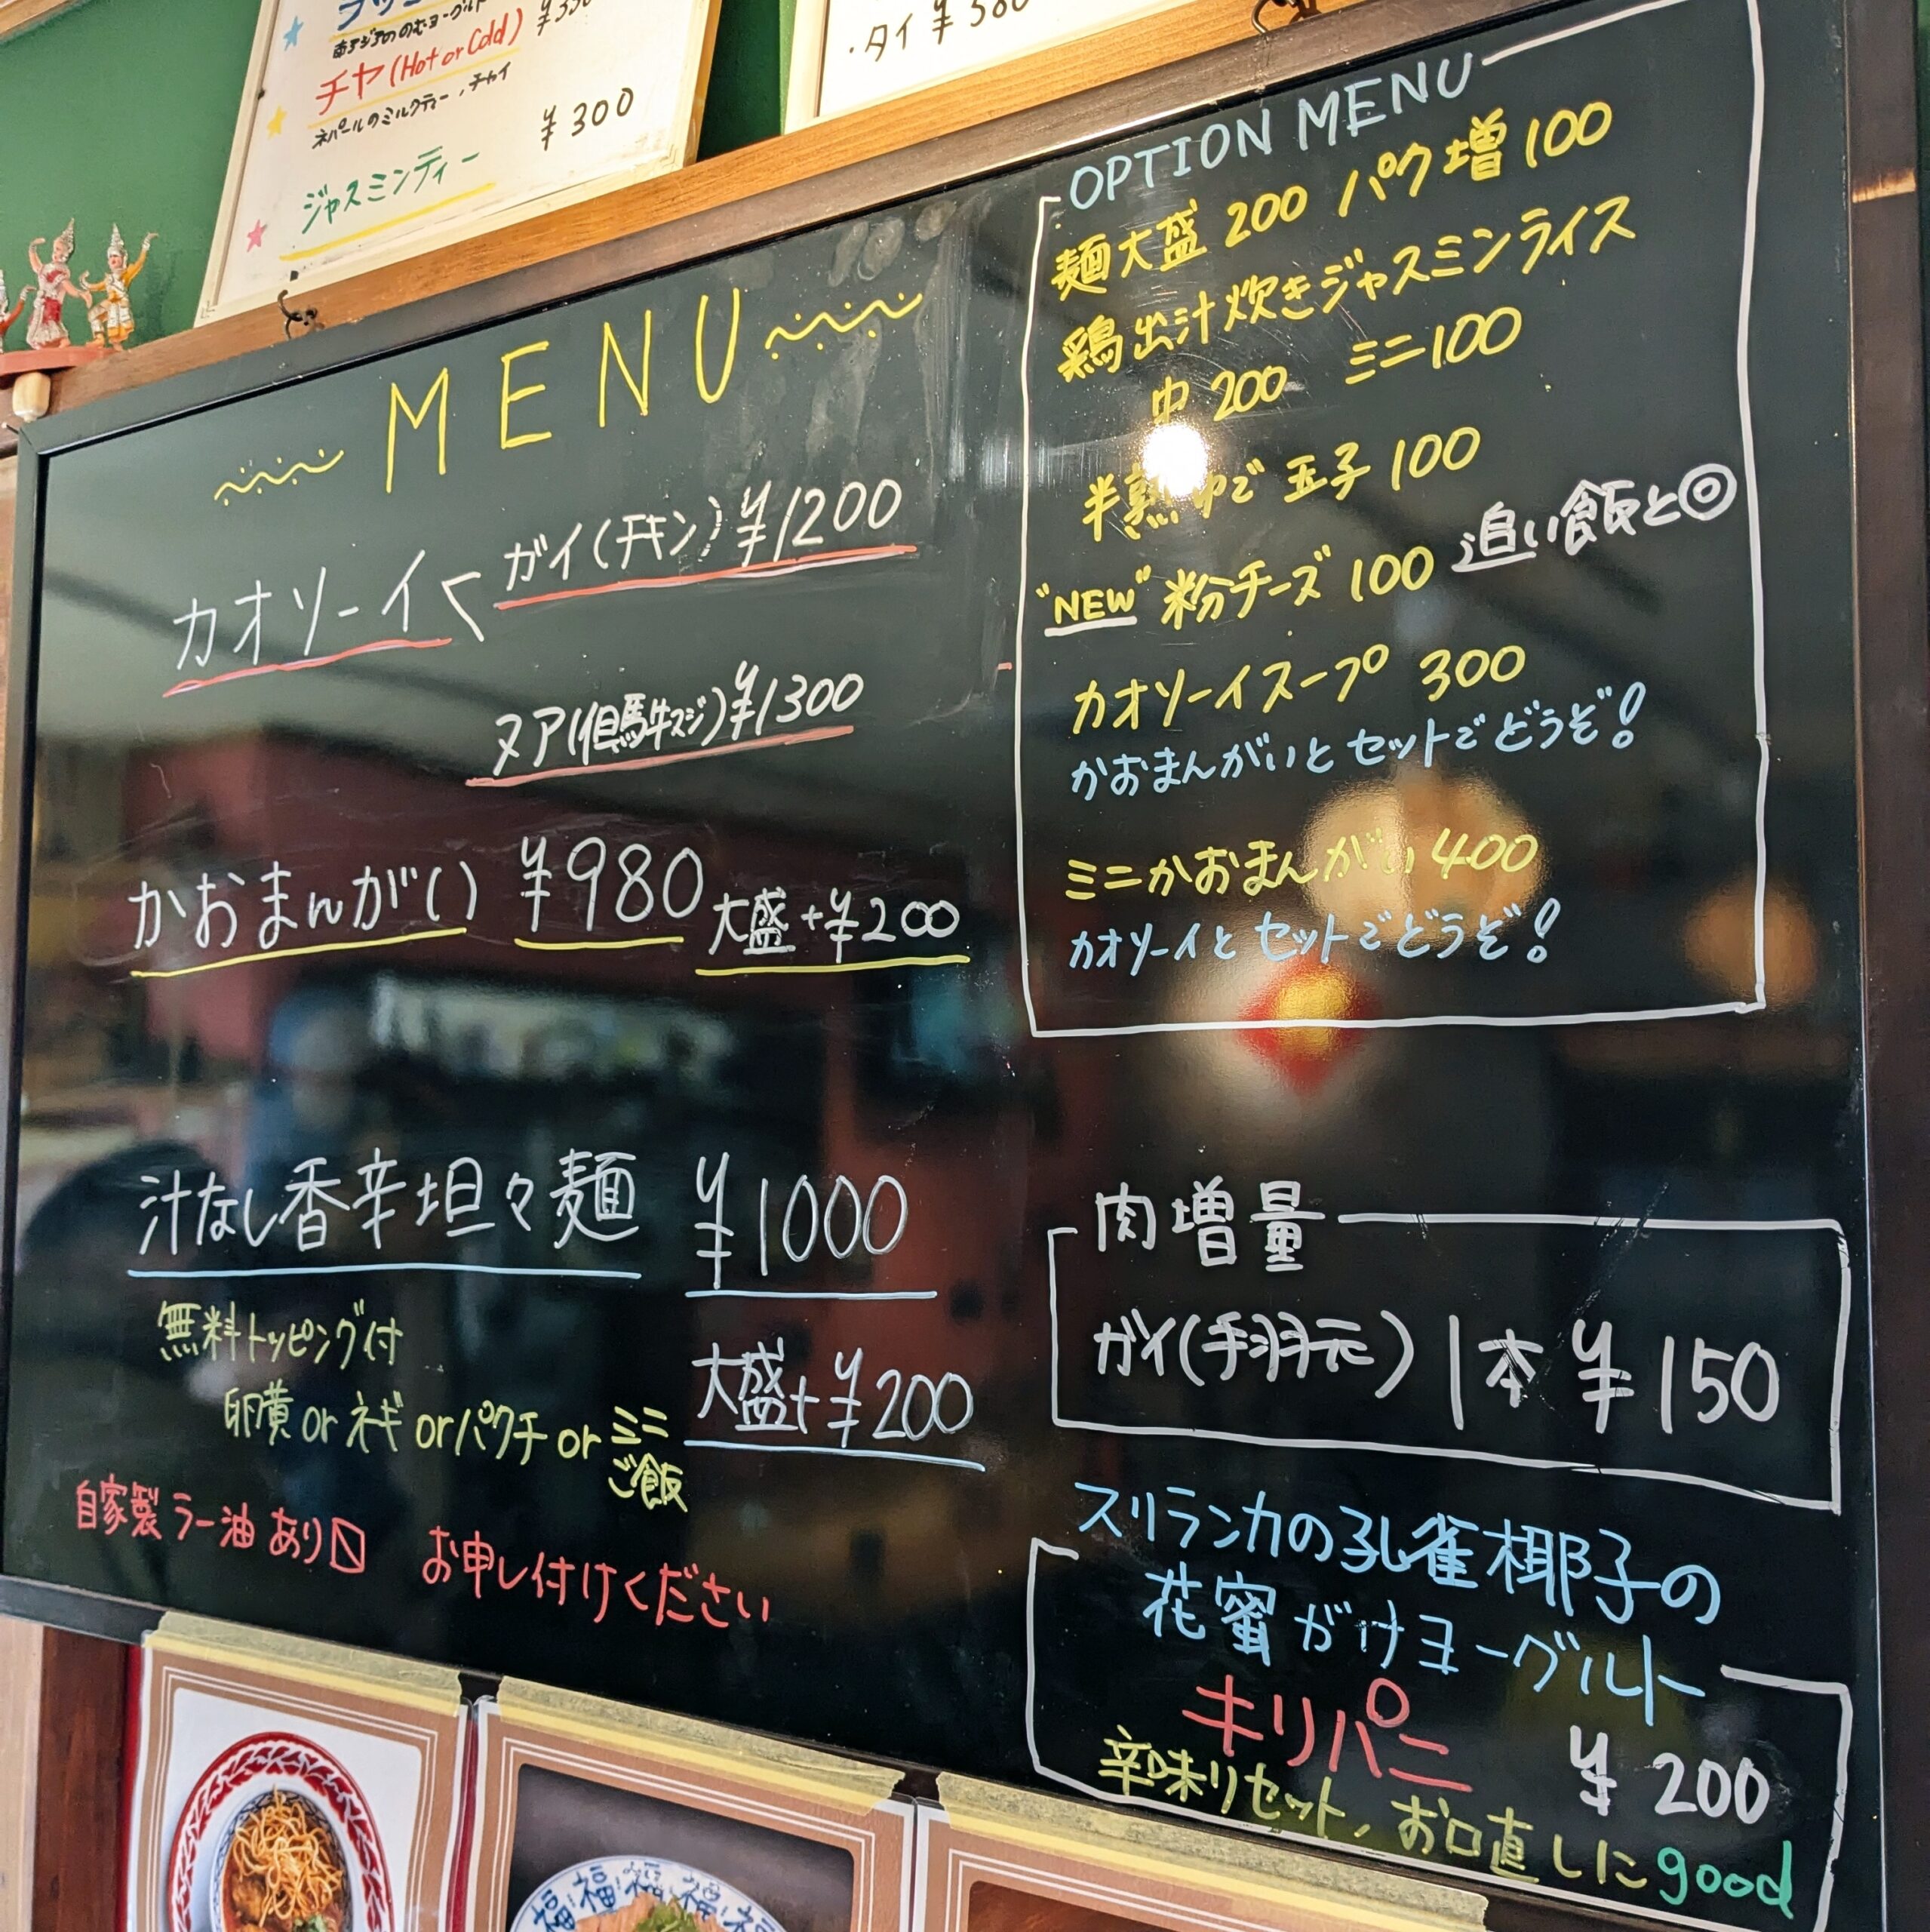 南アジアののむヨーグルト
チヤ(Hot or Cold)
ネパールのミルクティー、チャイ
¥300
ジャスミンティー
・タイ ¥580
MENU
カオソーイ<
ガイ(チキン)¥1200
ヌア(但馬牛スジ)¥1300
かおまんがい ¥980
大盛+¥200
汁なし香辛坦々麺 ¥1000
無料トッピング付
卵黄 or ネギ or パクチ or ミニ
ご飯
大盛+¥200
自家製ラー油あり〼 お申し付けください
OPTION MENU
麺大盛 200 パク増 100
鶏出汁炊きジャスミンライス
中 200 ミニ100
半熟ゆで玉子 100
"NEW" 粉チーズ 100 追い飯と◎
カオソーイスープ 300
かおまんがいとセットでどうぞ!
ミニかおまんがい 400
カオソーイとセットでどうぞ!
肉増量
ガイ(手羽元) 1本 ¥150
スリランカの孔雀椰子の
花蜜がけヨーグルト
キリパニ ¥200
辛味リセット、お口直しにgood
福 福 福 福